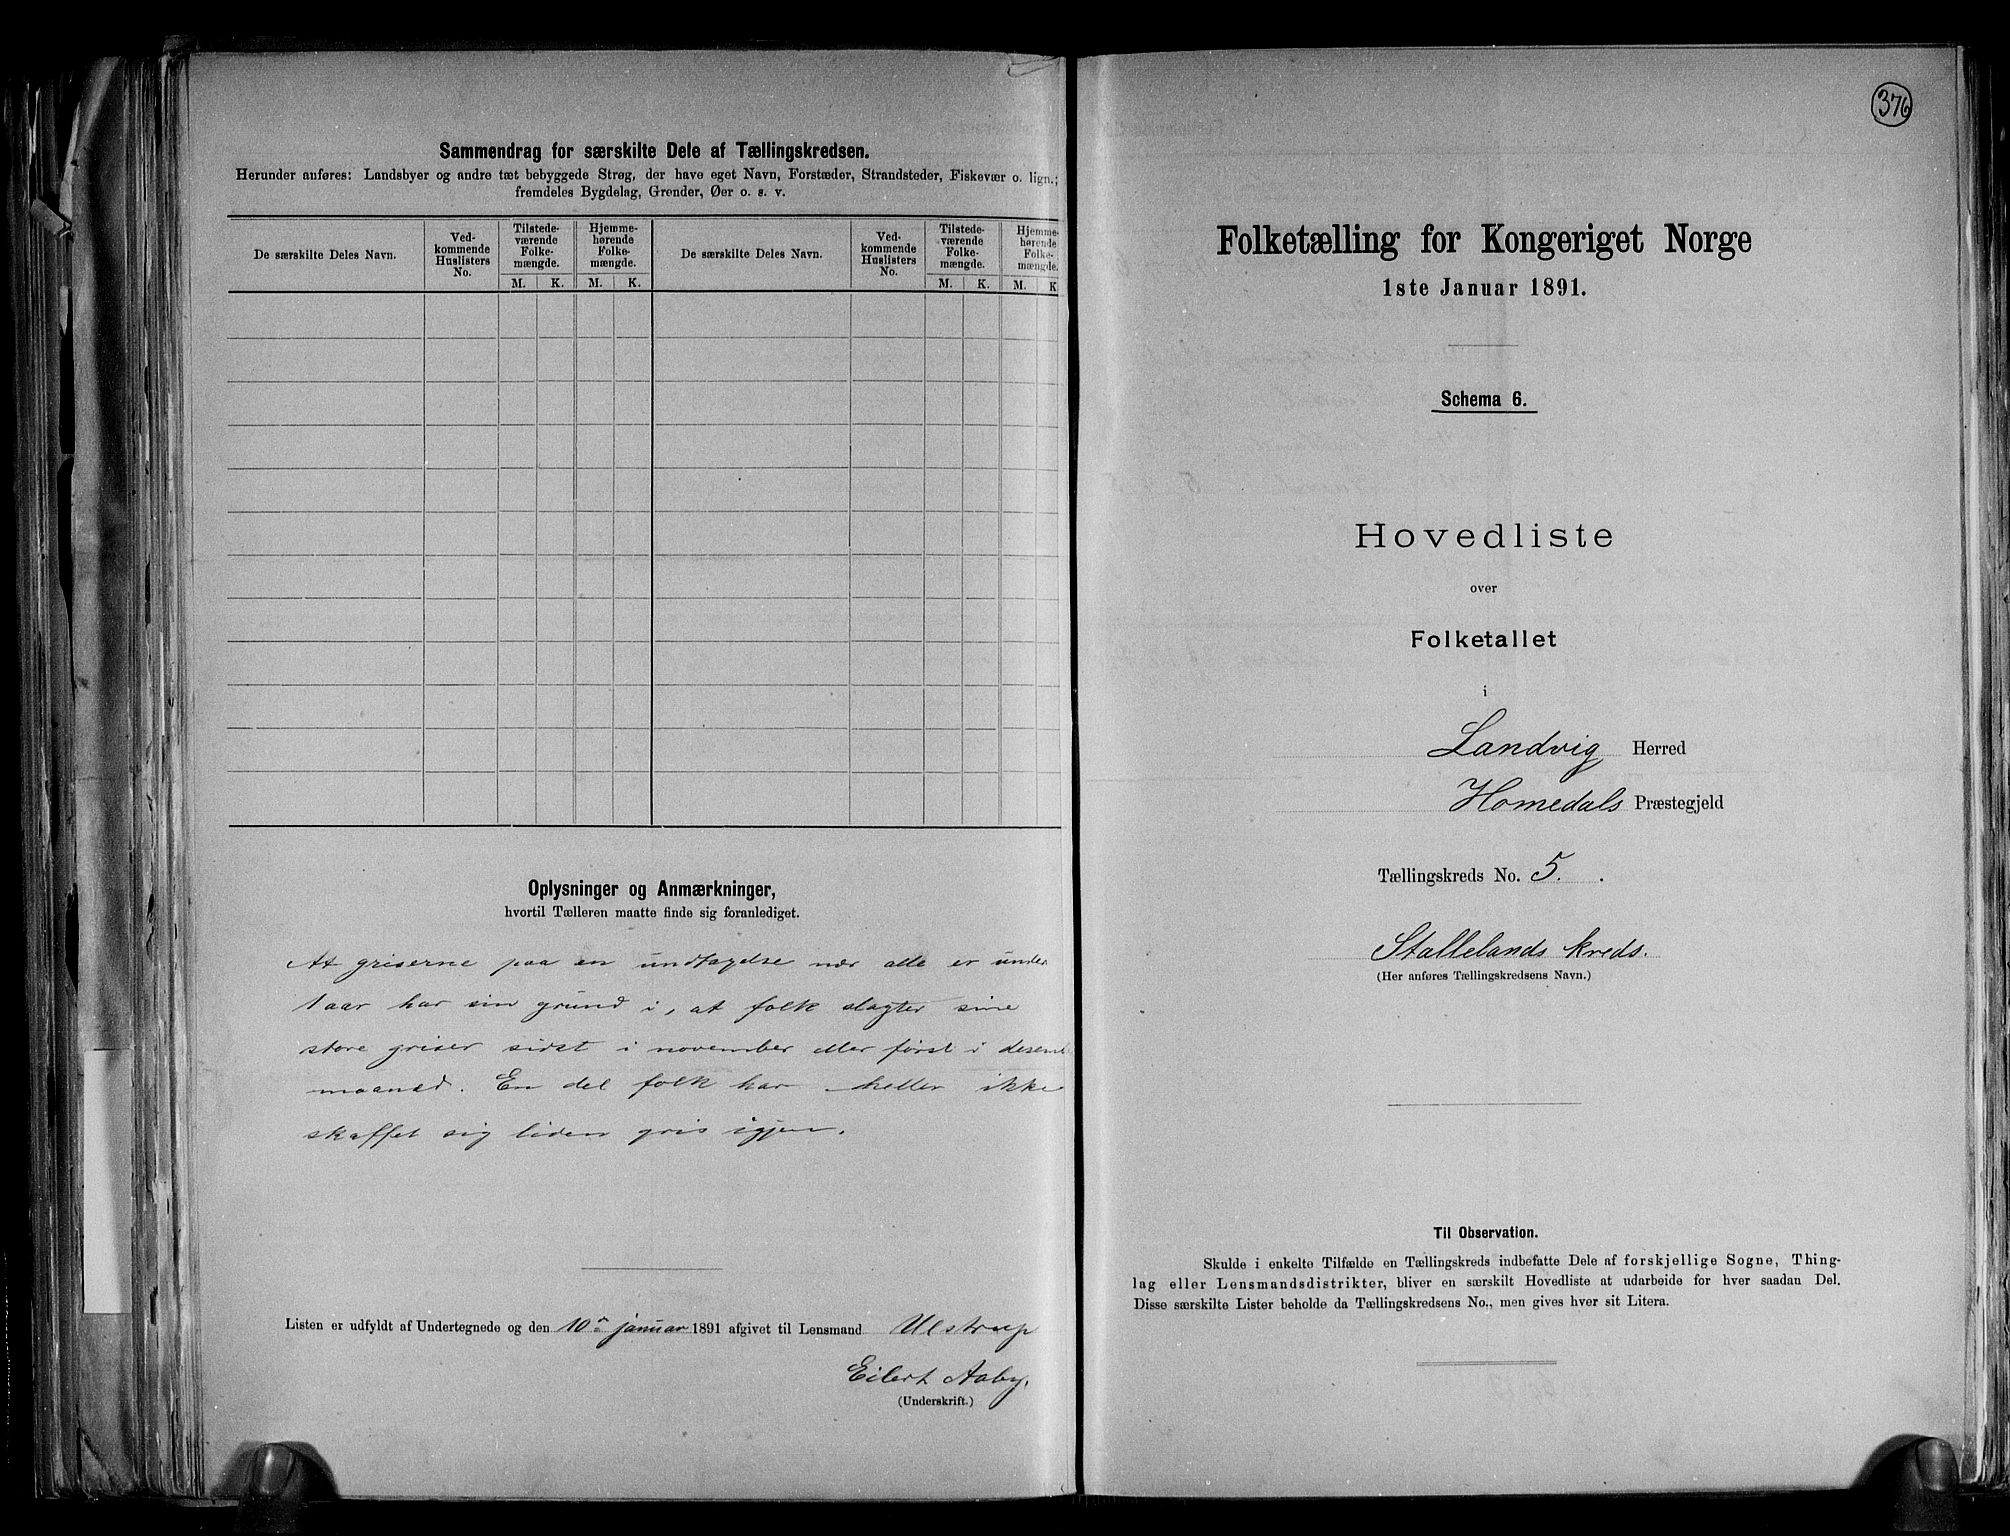 Sammendrag for særskilte Dele af Tællingskredsen.
Herunder anføres: Landsbyer og andre tæt bebyggede Strøg, der have eget Navn, Forstæder, Strandsteder, Fiskevær o. lign.;
fremdeles Bygdelag, Grender, Øer o. s. v.
De særskilte Deles Navn.
Ved-
kommende
Huslisters
No.
Tilstede-
værende
Folke-
mængde.
Hjemme-
hørende
Folke-
mængde.
De særskilte Deles Navn.
Ved-
kommende
Huslisters
No.
Tilstede-
værende
Folke-
mængde.
Hjemme-
hørende
Folke-
mængde.
M. K. M. K. M. K. M. K
Oplysninger og Anmærkninger,
hvortil Tælleren maatte finde sig foranlediget.
At griserne paa en undtagelse nær alle er under
1 aar har sin grund i, at folk slagter sine
store griser sidst i november eller først i desem
maaned. En del folk har heller ikke
skaffet sig liden gris igjen.
Listen er udfyldt af Undertegnede og den 10de januar 1891 afgivet til Lensmand Ulstrup
Eilert Aaby.
(Underskrift.)
376
Folketælling for Kongeriget Norge
1ste Januar 1891.
Schema 6.
Hovedliste
over
Folketallet
i
Landvig Herred
Homedals Præstegjeld
Tællingskreds No. 5.
Stallelands kreds.
(Her anføres Tællingskredsens Navn.)
Til Observation.
Skulde i enkelte Tilfælde en Tællingskreds indbefatte Dele af forskjellige Sogne, Thing-
lag eller Lensmandsdistrikter, bliver en særskilt Hovedliste at udarbeide for hver saadan Del.
Disse særskilte Lister beholde da Tællingskredsens No., men gives hver sit Litera.